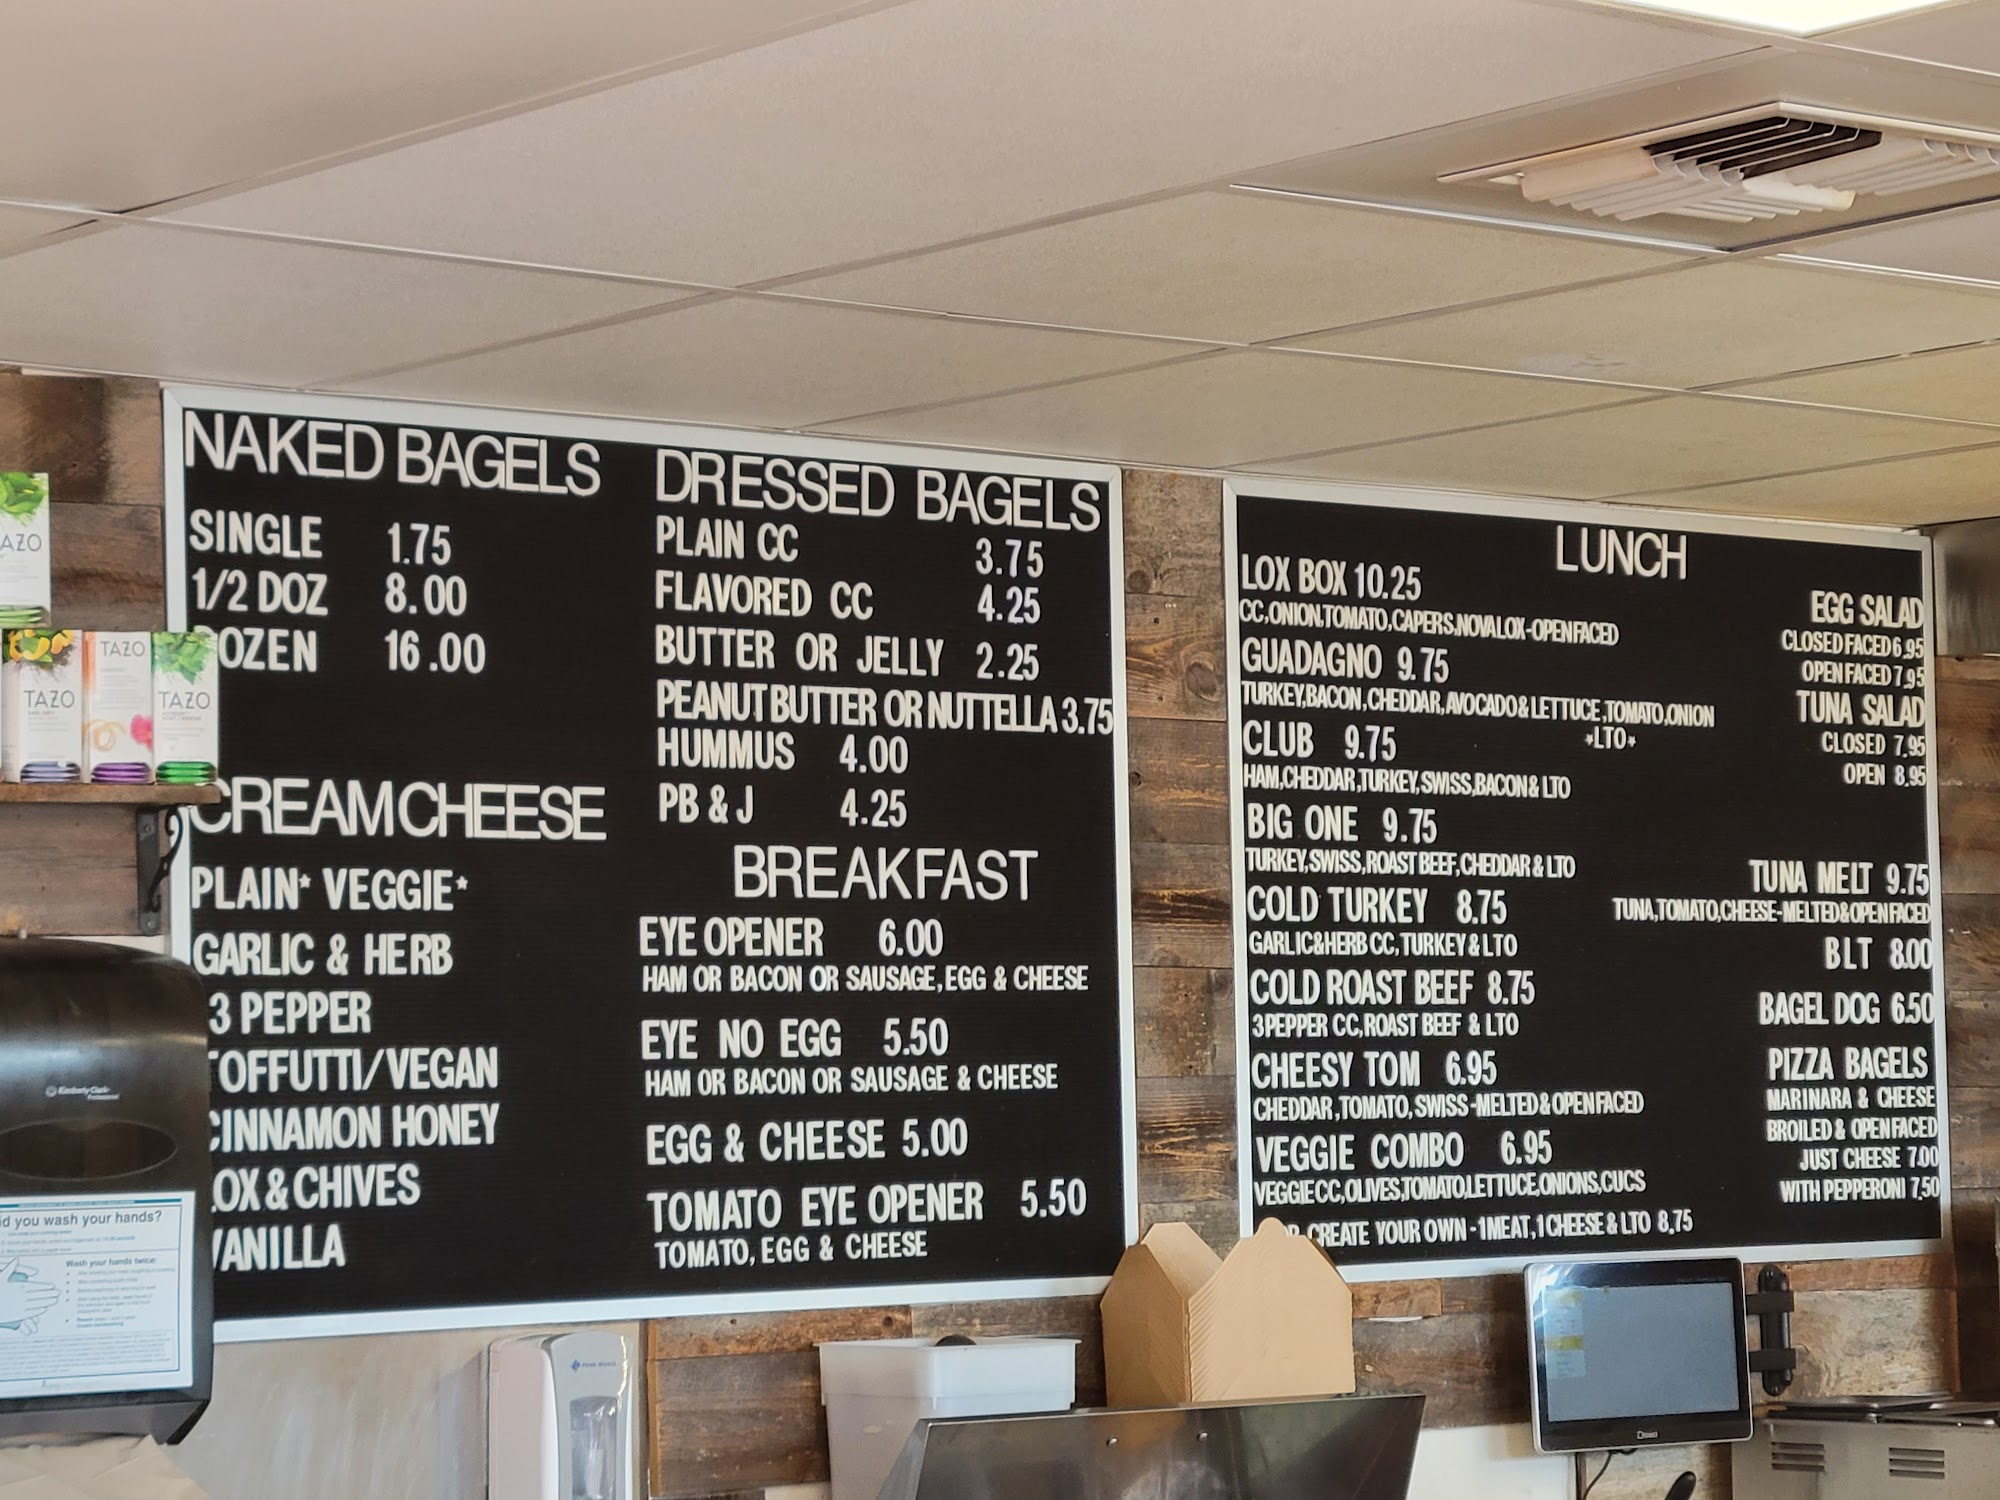 NAKED BAGELS
SINGLE 1.75
1/2 DOZ 8.00
OZEN 16.00
CREAM CHEESE
PLAIN* VEGGIE*
GARLIC & HERB
3 PEPPER
TOFFUTTI/VEGAN
CINNAMON HONEY
LOX & CHIVES
VANILLA
DRESSED BAGELS
PLAIN CC 3.75
FLAVORED CC 4.25
BUTTER OR JELLY 2.25
PEANUT BUTTER OR NUTTELLA 3.75
HUMMUS 4.00
PB & J 4.25
BREAKFAST
EYE OPENER 6.00
HAM OR BACON OR SAUSAGE, EGG & CHEESE
EYE NO EGG 5.50
HAM OR BACON OR SAUSAGE & CHEESE
EGG & CHEESE 5.00
TOMATO EYE OPENER 5.50
TOMATO, EGG & CHEESE
LUNCH
LOX BOX 10.25
CC,ONION.TOMATO,CAPERS,NOVALOX-OPENFACED
GUADAGNO 9.75
TURKEY,BACON,CHEDDAR,AVOCADO & LETTUCE,TOMATO,ONION
*LTO*
CLUB 9.75
HAM,CHEDDAR,TURKEY,SWISS,BACON & LTO
BIG ONE 9.75
TURKEY,SWISS,ROAST BEEF,CHEDDAR & LTO
COLD TURKEY 8.75
GARLIC&HERB CC,TURKEY & LTO
COLD ROAST BEEF 8.75
3PEPPER CC,ROAST BEEF & LTO
CHEESY TOM 6.95
CHEDDAR,TOMATO,SWISS-MELTED & OPENFACED
VEGGIE COMBO 6.95
VEGGIECC,OLIVES,TOMATO,LETTUCE,ONIONS,CUCS
CREATE YOUR OWN-1MEAT,1CHEESE & LTO 8.75
EGG SALAD
CLOSED FACED 6.95
OPEN FACED 7.95
TUNA SALAD
CLOSED 7.95
OPEN 8.95
TUNA MELT 9.75
TUNA,TOMATO,CHEESE-MELTED&OPENFACED
BLT 8.00
BAGEL DOG 6.50
PIZZA BAGELS
MARINARA & CHEESE
BROILED & OPENFACED
JUST CHEESE 7.00
WITH PEPPERONI 7.50
AZO
TAZO
TAZO
TAZO
Kimberly-Clark
Professional
id you wash your hands?
Wash your hands twice: